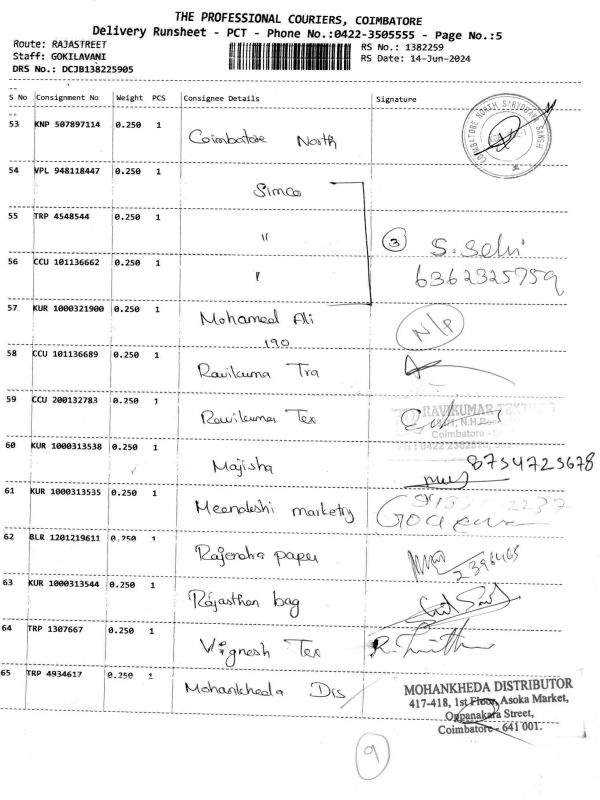 THE PROFESSIONAL COURIERS, COIMBATORE
Delivery Runsheet - PCT - Phone No.:0422-3505555 - Page No.:5
Route: RAJASTREET
Staff: GOKILAVANI
DRS No.: DCJB138225905
RS No.: 1382259
RS Date: 14-Jun-2024
S No Consignment No Weight PCS Consignee Details Signature
53 KNP 507897114 0.250 1 Coimbatore North
COIMBATORE NORTH SARVODAYA SANGH
54 VPL 948118447 0.250 1 Simco
55 TRP 4548544 0.250 1 "
3 S. Selvi
56 CCU 101136662 0.250 1 "
6362325759
57 KUR 1000321900 0.250 1 Mohamed Ali N/P
190
58 CCU 101136689 0.250 1 Ravikuma Tra
59 CCU 200132783 0.250 1 Ravikuma Tex
RAVIKUMAR
Coimbatore
60 KUR 1000313538 0.250 1 Majisha 8754723678
61 KUR 1000313535 0.250 1 Meenakshi marketry
62 BLR 1201219611 0.250 1 Rajendra paper
2396465
63 KUR 1000313544 0.250 1 Rajasthan bag
64 TRP 1307667 0.250 1 Vignesh Tex
65 TRP 4934617 0.250 1 Mohankheda Dis
MOHANKHEDA DISTRIBUTOR
417-418, 1st Floor, Asoka Market,
Oppanakara Street,
Coimbatore - 641 001.
9